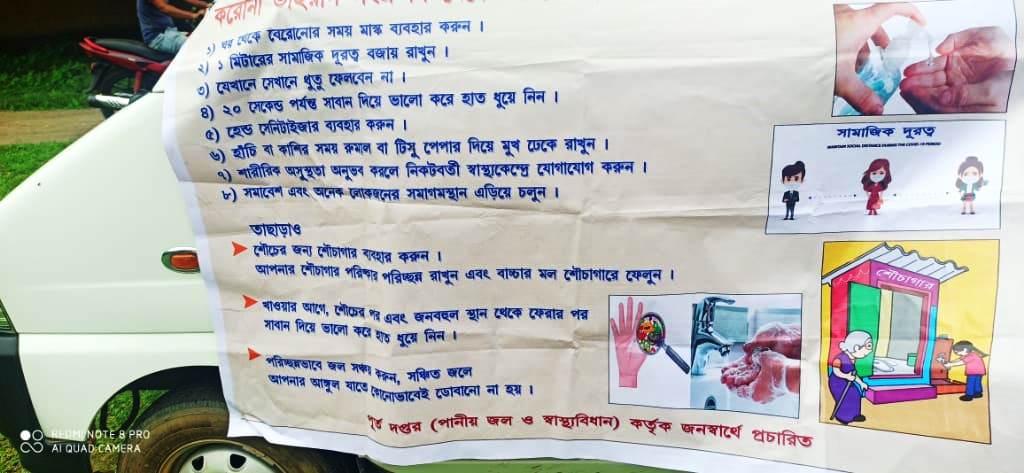 করোনা ভাইরাস
১) ঘর থেকে বেরোনোর সময় মাস্ক ব্যবহার করুন ।
২) ১ মিটারের সামাজিক দূরত্ব বজায় রাখুন ।
৩) যেখানে সেখানে থুতু ফেলবেন না ।
৪) ২০ সেকেন্ড পর্যন্ত সাবান দিয়ে ভালো করে হাত ধুয়ে নিন ।
৫) হেন্ড সেনিটাইজার ব্যবহার করুন ।
৬) হাঁচি বা কাশির সময় রুমাল বা টিসু পেপার দিয়ে মুখ ঢেকে রাখুন ।
৭) শারীরিক অসুস্থতা অনুভব করলে নিকটবর্তী স্বাস্থ্যকেন্দ্রে যোগাযোগ করুন ।
৮) সমাবেশ এবং অনেক লোকজনের সমাগমস্থান এড়িয়ে চলুন ।
সামাজিক দূরত্ব
MAINTAIN SOCIAL DISTANCE DURING THE COVID-19 PERIOD
তাছাড়াও
শৌচের জন্য শৌচাগার ব্যবহার করুন ।
আপনার শৌচাগার পরিষ্কার পরিচ্ছন্ন রাখুন এবং বাচ্চার মল শৌচাগারে ফেলুন ।
খাওয়ার আগে, শৌচের পর এবং জনবহুল স্থান থেকে ফেরার পর
সাবান দিয়ে ভালো করে হাত ধুয়ে নিন ।
পরিচ্ছন্নভাবে জল সঞ্চয় করুন, সঞ্চিত জলে
আপনার আঙ্গুল যাতে কোনোভাবেই ডোবানো না হয় ।
শৌচাগার
পূর্ত দপ্তর (পানীয় জল ও স্বাস্থ্যবিধান) কর্তৃক জনস্বার্থে প্রচারিত
REDMI NOTE 8 PRO
AI QUAD CAMERA